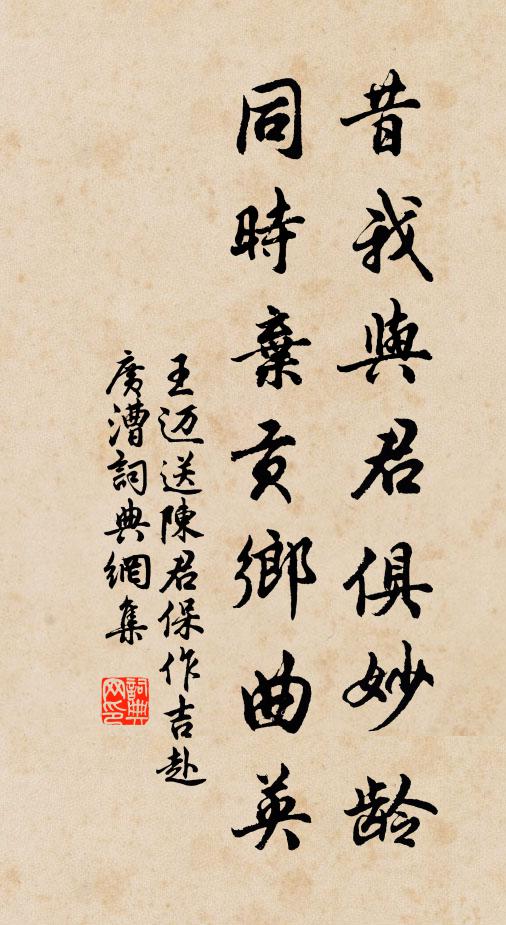 昔我與君俱妙龄
同時棄貢鄉曲英
王迈送陳君保作吉赴
廣漕詞典網集
詞典
网印